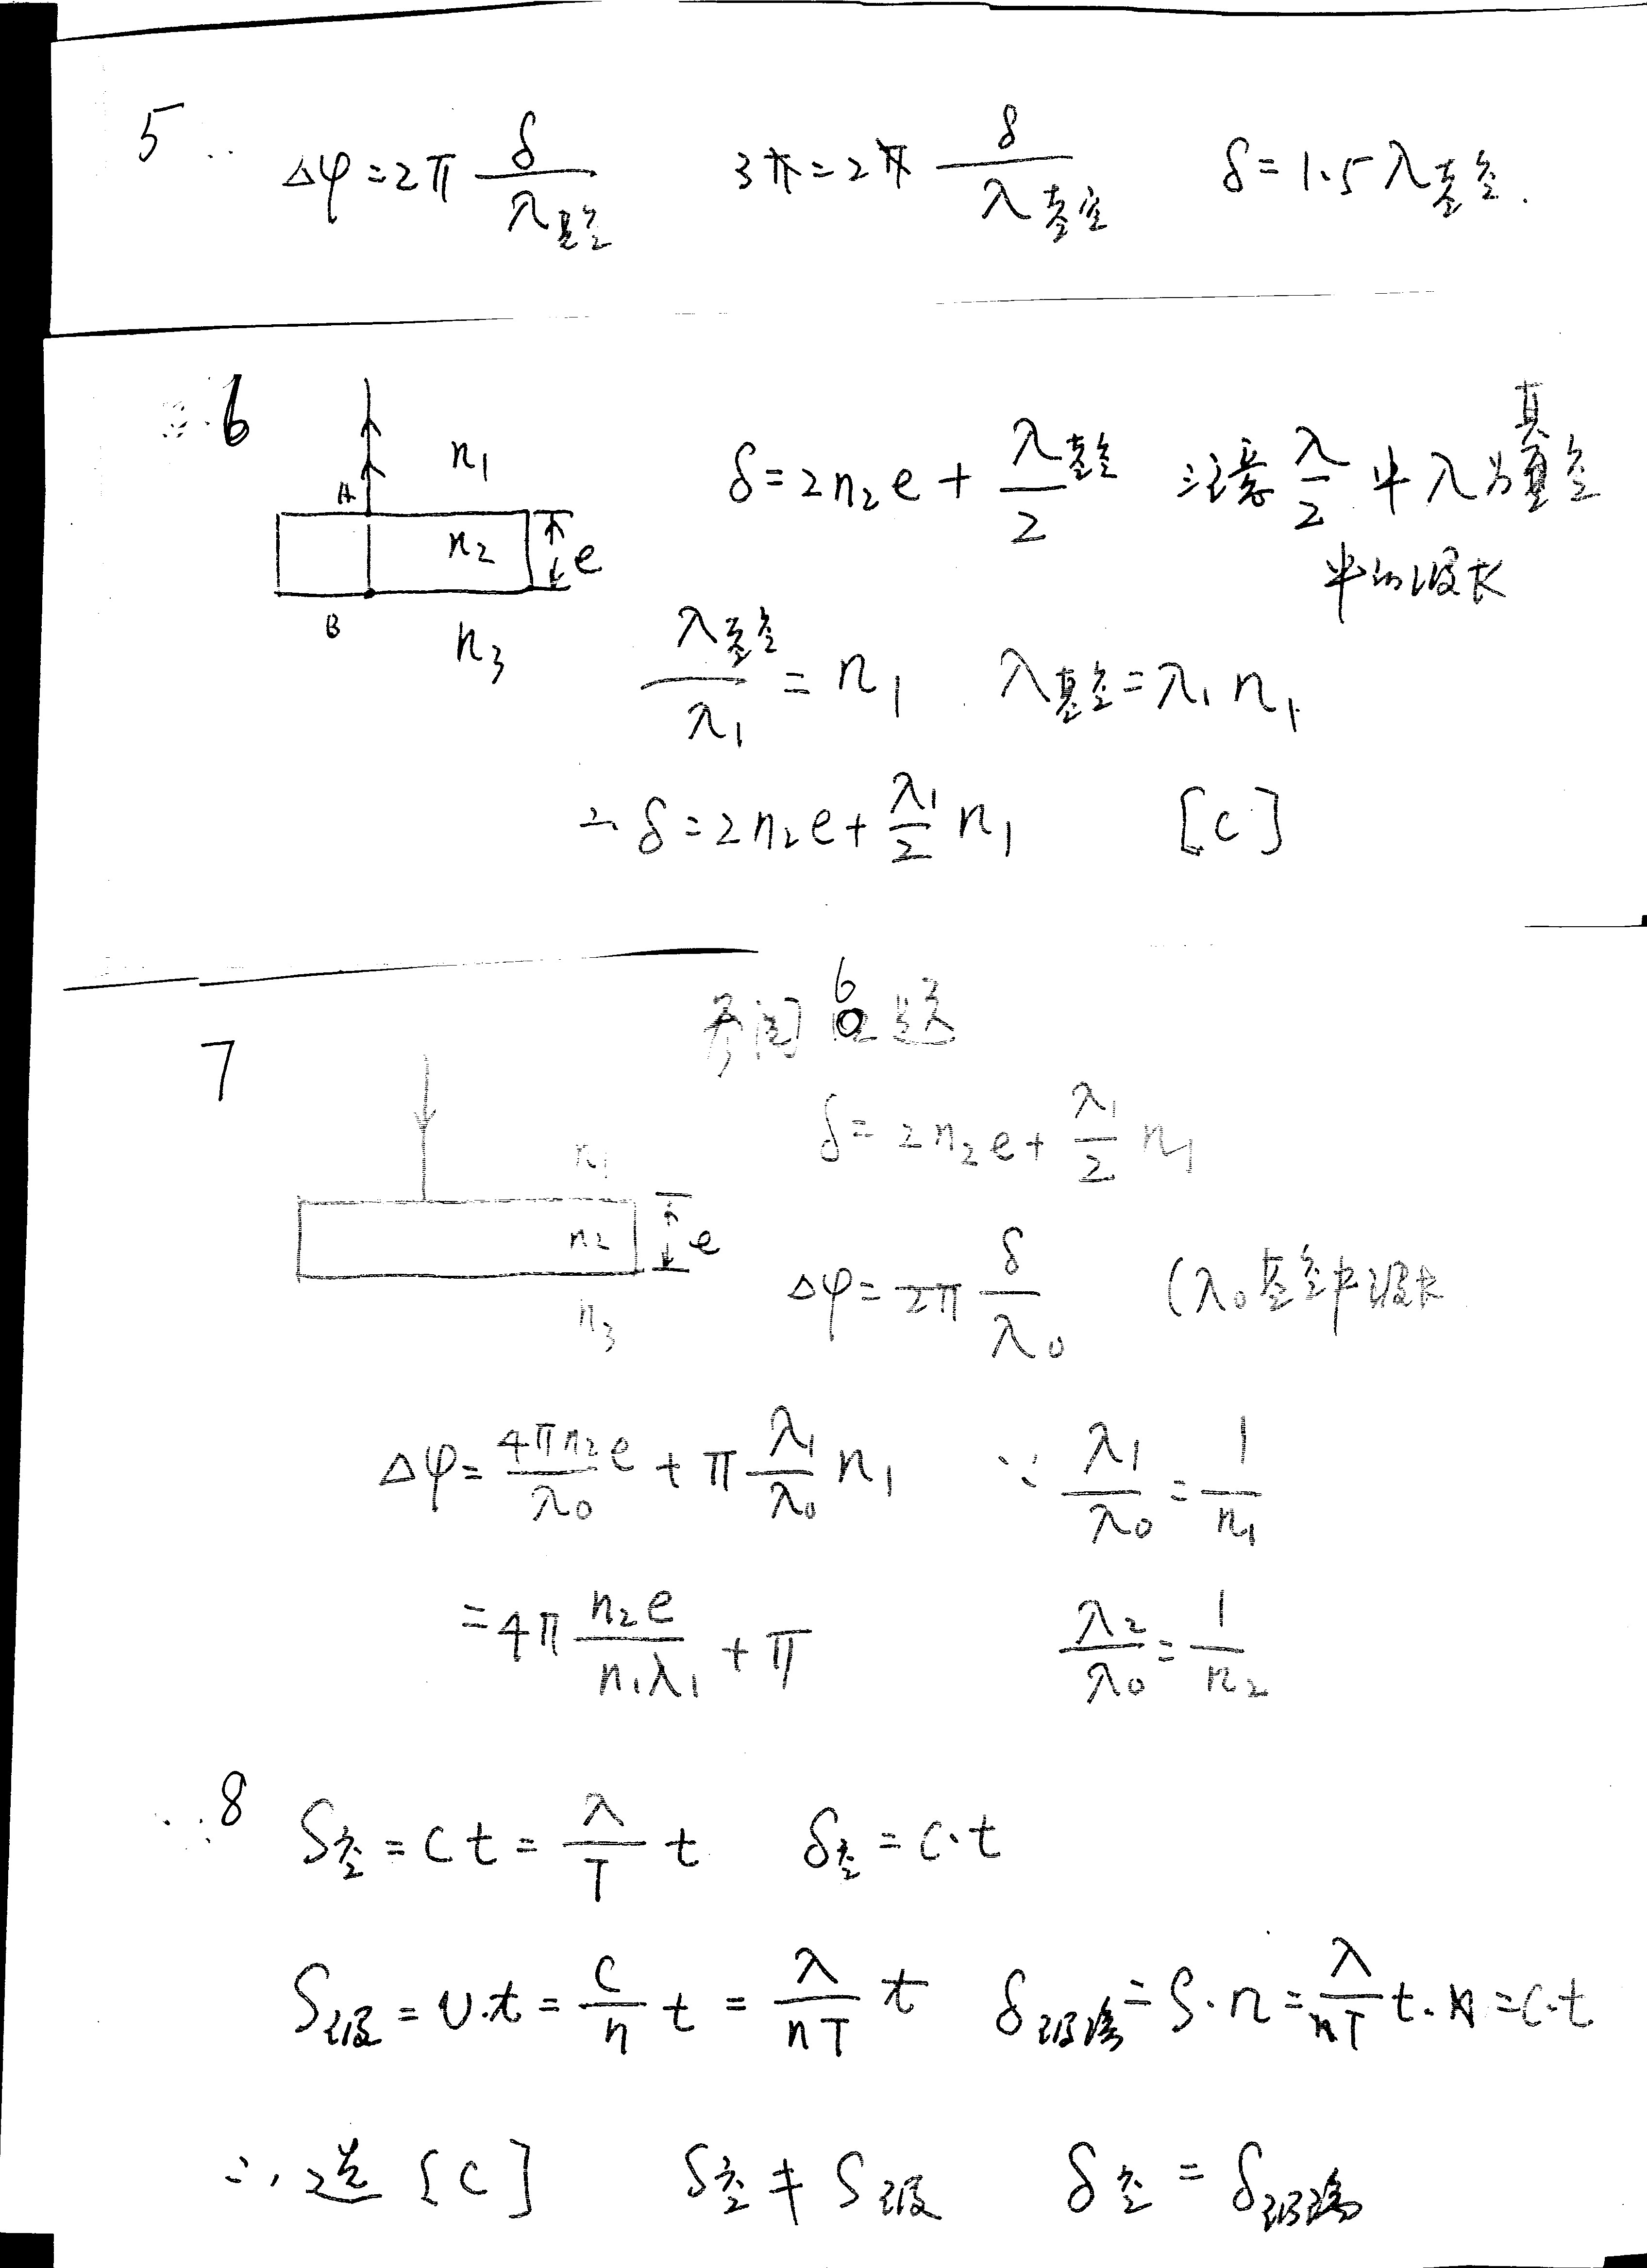 5 Δφ=2π δ/λ真空 3π=2π δ/λ真空 δ=1.5λ真空.
6 n₁ δ=2n₂e+λ真空/2 注意 λ/2 中λ为真空
A n₂ e 中的波长
B n₃ λ真空/λ₁=n₁ λ真空=λ₁n₁
∴ δ=2n₂e+λ₁/2 n₁ [C]
7 参阅6题
n₁ δ=2n₂e+λ₁/2 n₁
n₂ e Δφ=2π δ/λ₀ (λ₀真空中波长
n₃
Δφ=4πn₂e/λ₀+πλ₁/λ₀ n₁ ∵ λ₁/λ₀=1/n₁
=4π n₂e/n₁λ₁+π λ₂/λ₀=1/n₂
8 S空=ct=λ/T t δ空=c·t
S玻=υ.t=c/n t=λ/nT t δ玻璃=S·n=λ/nT t·n=c·t
∴选[C] S空≠S玻 δ空=δ玻璃